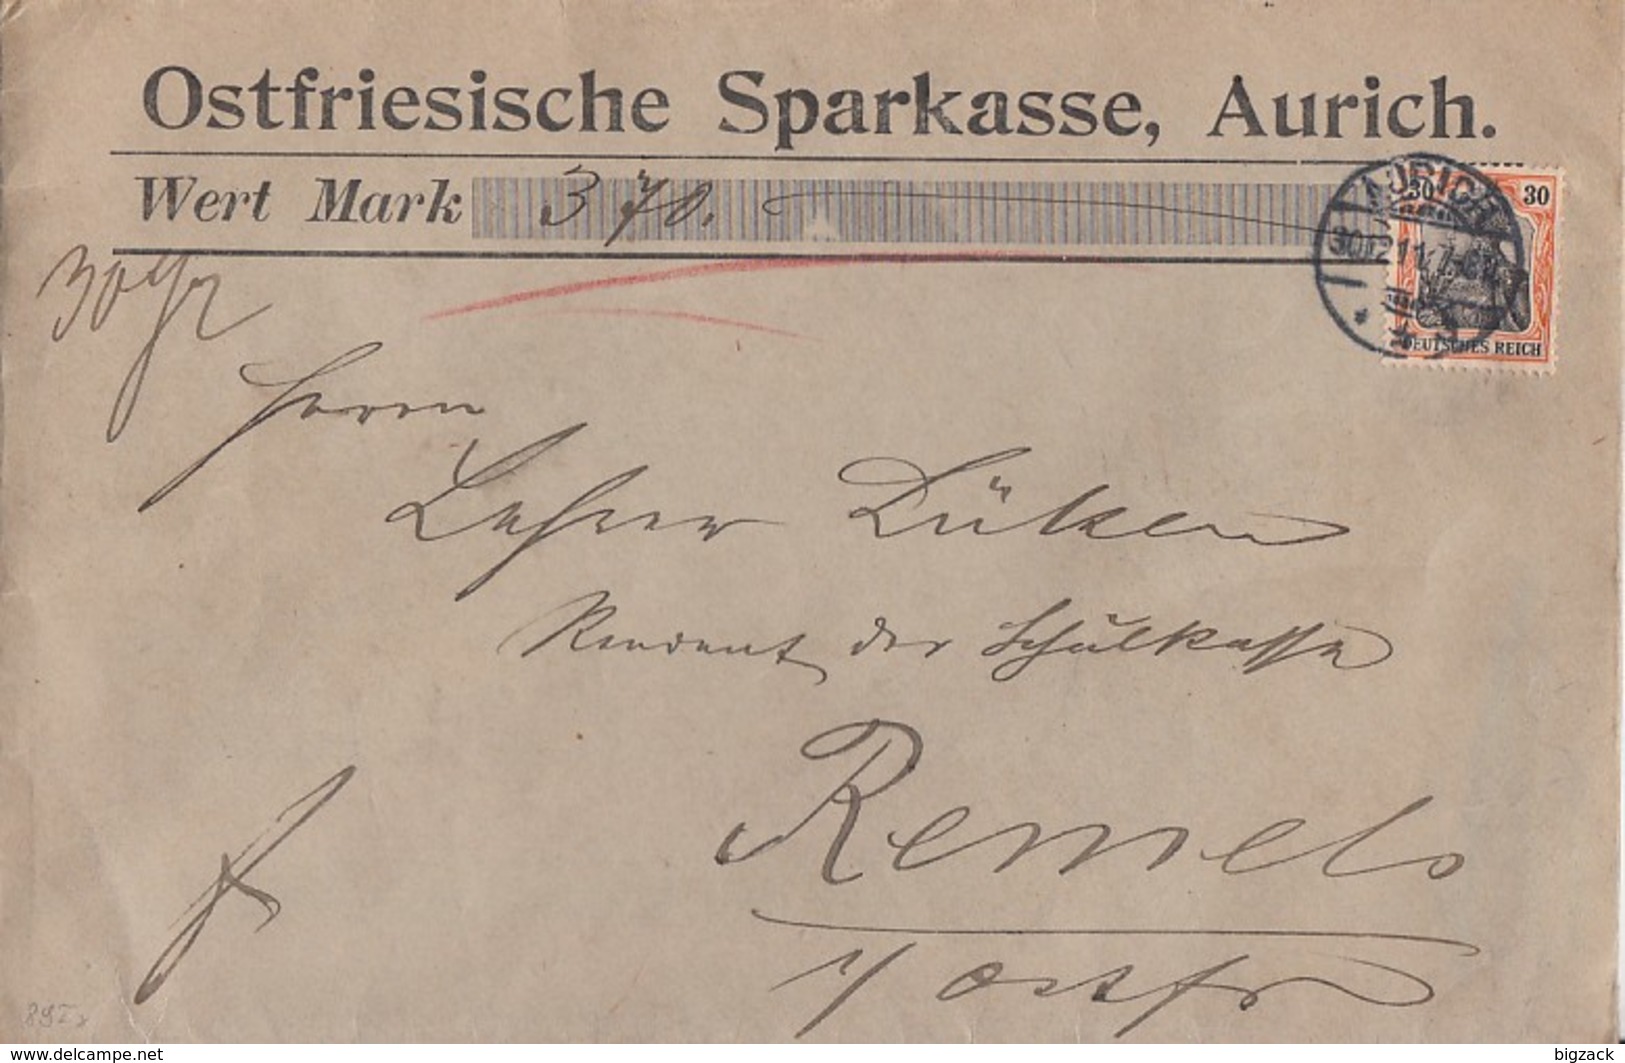 Ostfriesische Sparkasse, Aurich.
Wert Mark 370.
AURICH
30.12.11.7-8N
30 30
DEUTSCHES REICH
30 gr
Herrn
Lehrer Lüken
Rendant der Schulkasse
Remels
i/Ostfr
www.delcampe.net
bigzack